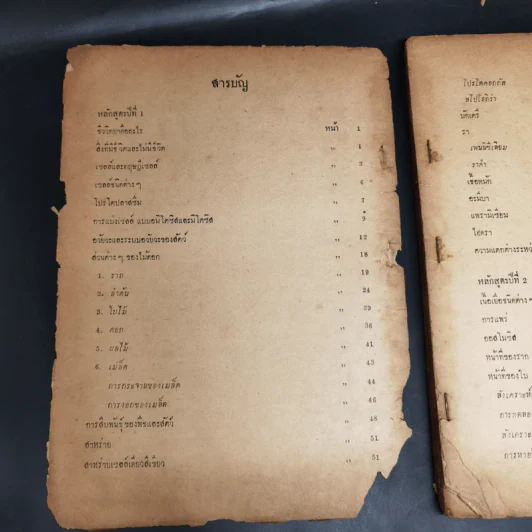 สารบัญ
หลักสูตรปีที่ 1
ชีววิทยาคืออะไร หน้า 1
สิ่งที่มีชีวิตและไม่มีชีวิต " 1
เซลล์และทฤษฎีเซลล์ " 3
เซลล์ชนิดต่าง ๆ " 6
โปรโตปลาสซึม " 7
การแบ่งเซลล์ แบบอมิโตซิสและมิโตซิส " 9
อวัยวะและระบบอวัยวะของสัตว์ " 12
ส่วนต่าง ๆ ของไม้ดอก " 18
1. ราก " 19
2. ลำต้น " 24
3. ใบไม้ " 29
4. ดอก " 36
5. ผลไม้ " 41
6. เมล็ด " 43
การกระจายของเมล็ด " 44
การงอกของเมล็ด " 46
การสืบพันธุ์ของพืชและสัตว์ " 48
สาหร่าย " 51
สาหร่ายเซลล์เดียวสีเขียว " 51
โปรโตคอกคัส
สไปโรไจร่า
บักเตรี
รา
เพนนิซิเลียม
ราดำ
เชื้อหมัก
อะมีบา
แพรามีเซียม
ไฮดรา
ความแตกต่างระหว่
หลักสูตรปีที่ 2
เนื้อเยื่อชนิดต่าง ๆ
การแพร่
ออสโมซิส
หน้าที่ของราก
หน้าที่ของใบ
สังเคราะห์
การทดลอง
สังเคราะ
การหาย